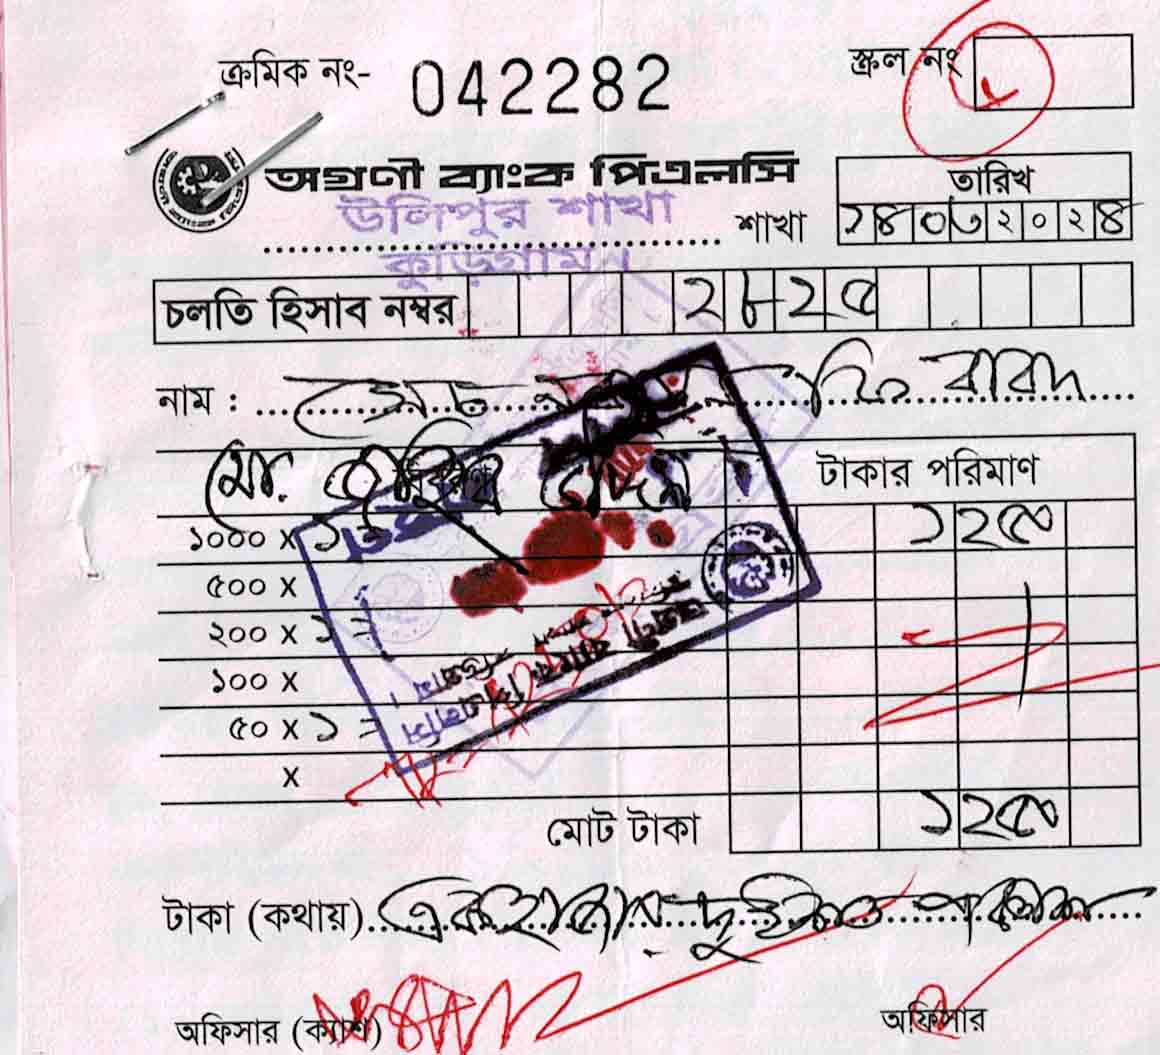 ক্রমিক নং- 042282
স্ক্রল নং
অগ্রণী ব্যাংক পিএলসি
উলিপুর শাখা
শাখা
কুড়িগ্রাম।
তারিখ
২৪০৩২০২৪
চলতি হিসাব নম্বর
নাম : সেচ ফি বাবদ
মো.
টাকার পরিমাণ
১০০০ x ১ ১২৫০
৫০০ x
২০০ x ১ =
১০০ x
৫০ x ১ =
x
মোট টাকা ১২৫০
টাকা (কথায়) একহাজার দুইশত পঞ্চাশ
অফিসার (ক্যাশ)
অফিসার